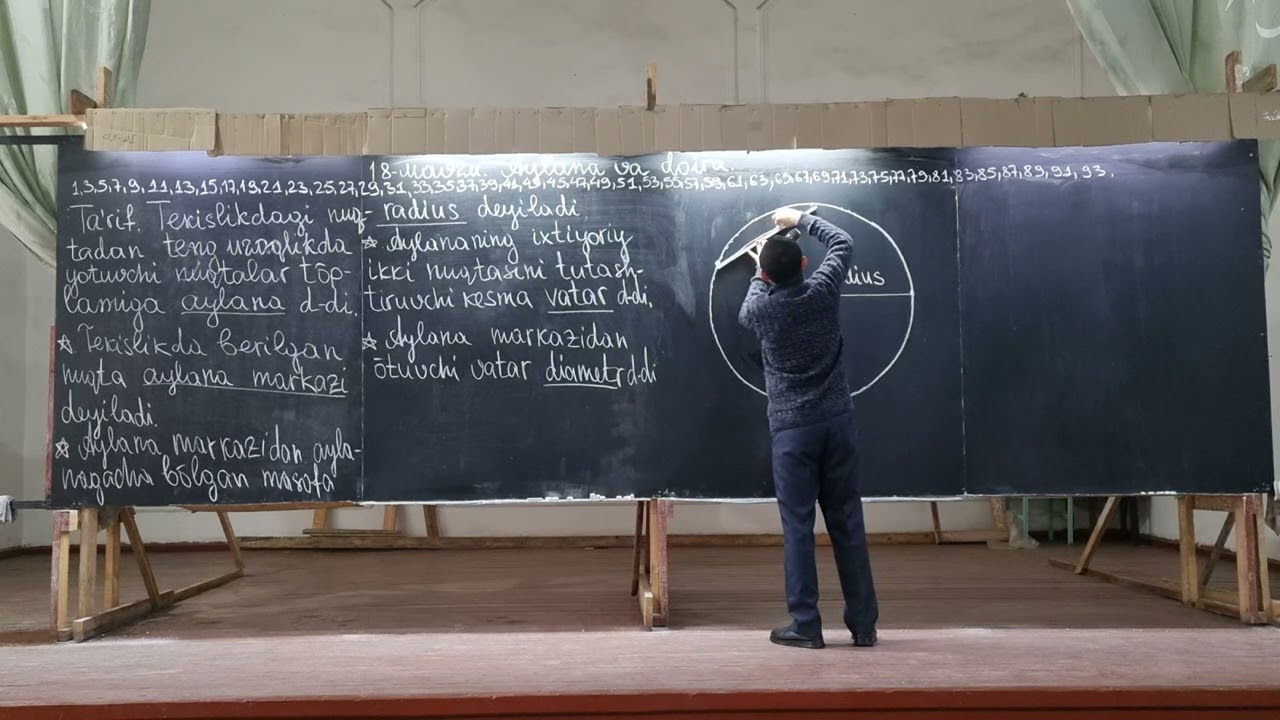 18-Mavzu. Aylana va doira.
1,3,5,7,9,11,13,15,17,19,21,23,25,27,29,31,33,35,37,39,41,43,45,47,49,51,53,55,57,59,61,63,65,67,69,71,73,75,77,79,81,83,85,87,89,91,93.
Ta'rif. Tekislikdagi nuq-
tadan teng uzoqlikda
yotuvchi nuqtalar tōp-
lamiga aylana d-di.
☆ Tekislikda berilgan
nuqta aylana markazi
deyiladi.
☆ Aylana markazidan ayla-
nagacha bōlgan masofa
radius deyiladi.
☆ Aylananing ixtiyoriy
ikki nuqtasini tutash-
tiruvchi kesma vatar d-di.
☆ Aylana markazidan
ōtuvchi vatar diametr d-di
dius